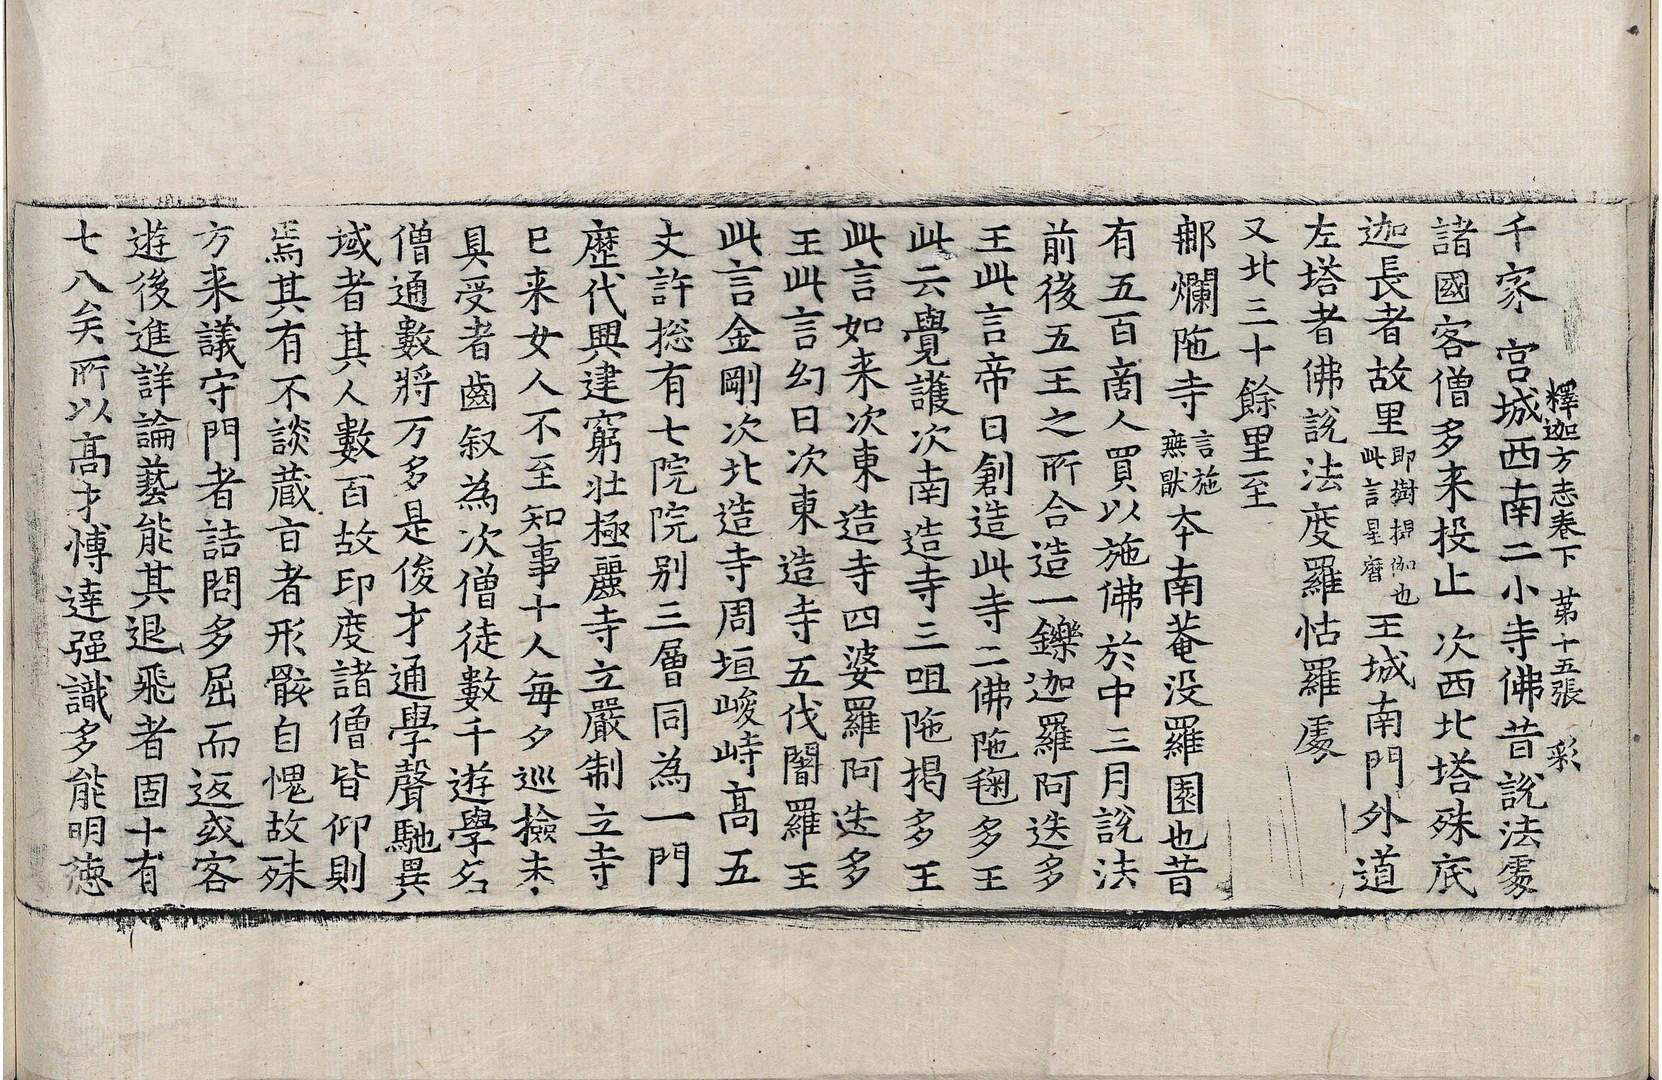 釋迦方志卷下 第十五張 彩
千家 宮城西南二小寺佛昔說法處
諸國客僧多来投止 次西北塔殊底
迦長者故里即樹提伽也此言星曆王城南門外道
左塔者佛說法度羅怙羅處
又北三十餘里至
那爛陁寺言施無猒夲南菴没羅園也昔
有五百啇人買以施佛於中三月說法
前後五王之所合造一鑠迦羅阿迭多
王此言帝日創造此寺二佛陁毱多王
此云覺護次南造寺三呾陁揭多王
此言如来次東造寺四婆羅阿迭多
王此言幻日次東造寺五伐闍羅王
此言金剛次北造寺周垣峻峙高五
丈許揔有七院院别三層同為一門
歷代興建窮壯極麗寺立嚴制立寺
已来女人不至知事十人每夕巡撿未
具受者齒叙為次僧徒數千遊學名
僧通數將万多是俊才通學聲馳異
域者其人數百故印度諸僧皆仰則
焉其有不談蔵言者形骸自愧故殊
方来議守門者詰問多屈而返或客
遊後進詳論藝能其退飛者固十有
七八矣所以高才愽達强識多能明德